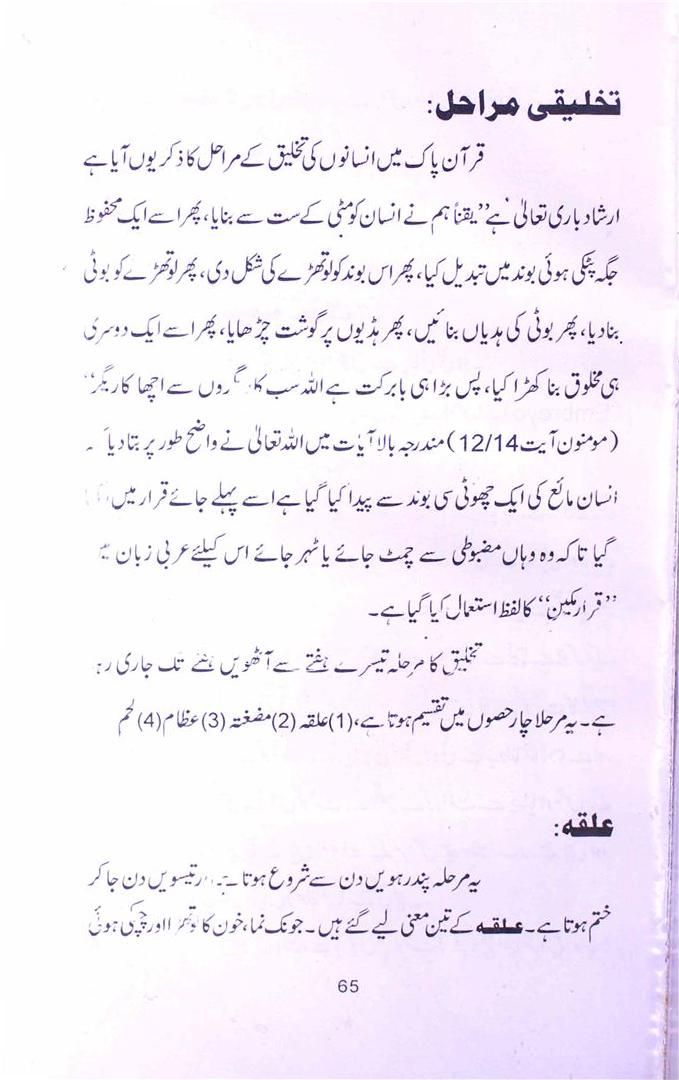 تخلیقی مراحل:
قرآن پاک میں انسانوں کی تخلیق کے مراحل کا ذکر یوں آیا ہے
ارشاد باری تعالیٰ ہے ’’یقناً ہم نے انسان کو مٹی کے ست سے بنایا، پھر اسے ایک محفوظ
جگہ ٹپکی ہوئی بوند میں تبدیل کیا، پھر اس بوند کو لوتھڑے کی شکل دی، پھر لوتھڑے کو بوٹی
بنادیا، پھر بوٹی کی ہدیاں بنائیں، پھر ہڈیوں پر گوشت چڑھایا، پھر اسے ایک دوسری
ہی مخلوق بنا کھڑا کیا، پس بڑا ہی بابرکت ہے اللہ سب کاریگروں سے اچھا کاریگر‘‘
(مومنون آیت 12/14) مندرجہ بالا آیات میں اللہ تعالیٰ نے واضح طور پر بتادیا
انسان مائع کی ایک چھوٹی سی بوند سے پیدا کیا گیا ہے اسے پہلے جائے قرار میں
گیا تا کہ وہ وہاں مضبوطی سے چمٹ جائے یا ٹہر جائے اس کیلئے عربی زبان میں
’’قرار مکین‘‘ کا لفظ استعمال کیا گیا ہے۔
تخلیق کا مرحلہ تیسرے ہفتے سے آٹھویں ہفتے تک جاری رہ
ہے۔ یہ مرحلا چار حصوں میں تقسیم ہوتا ہے، (1) علقہ (2) مضغتہ (3) عظام (4) لحم
علقہ:
یہ مرحلہ پندرہویں دن سے شروع ہوتا ہے اور تیسویں دن جا کر
ختم ہوتا ہے۔ علقہ کے تین معنی لیے گئے ہیں۔ جونک نما، خون کا لوتھڑا اور چپکی ہوئی
65